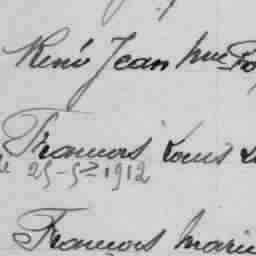 René Jean
François Louis
25-5-1912
François Marie